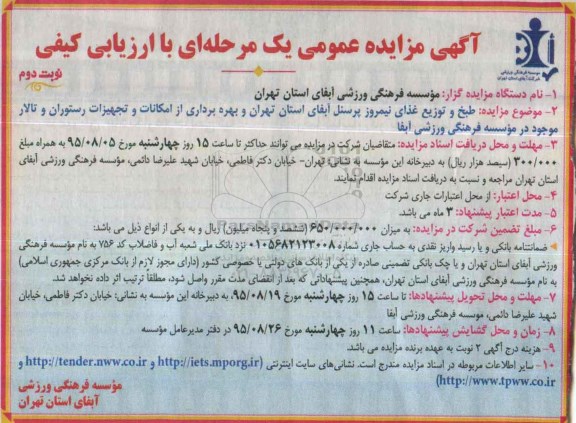 آگهی مزایده عمومی یک مرحله‌ای با ارزیابی کیفی
نوبت دوم
مؤسسه فرهنگی ورزشی
آبفای استان تهران
۱- نام دستگاه مزایده گزار: مؤسسه فرهنگی ورزشی آبفای استان تهران
۲- موضوع مزایده: طبخ و توزیع غذای نیمروز پرسنل آبفای استان تهران و بهره برداری از امکانات و تجهیزات رستوران و تالار
موجود در مؤسسه فرهنگی ورزشی آبفا
۳- مهلت و محل دریافت اسناد مزایده: متقاضیان شرکت در مزایده می توانند حداکثر تا ساعت ۱۵ روز چهارشنبه مورخ ۹۵/۰۸/۰۵ به همراه مبلغ
۳۰۰/۰۰۰ (سیصد هزار ریال) به دبیرخانه این مؤسسه به نشانی تهران- خیابان دکتر فاطمی، خیابان شهید علیرضا دائمی، مؤسسه فرهنگی ورزشی آبفای
استان تهران مراجعه و نسبت به دریافت اسناد مزایده اقدام نمایند.
۴- محل اعتبار: از محل اعتبارات جاری شرکت
۵- مدت اعتبار پیشنهاد: ۳ ماه می باشد.
۶- مبلغ تضمین شرکت در مزایده: به میزان ۶۵۰/۰۰۰/۰۰۰ (ششصد و پنجاه میلیون) ریال و به یکی از انواع ذیل می باشد:
ضمانتنامه بانکی و یا رسید واریز نقدی به حساب جاری شماره ۰۱۰۵۶۸۲۱۲۳۰۰۸ نزد بانک ملی شعبه آب و فاضلاب کد ۷۵۶ به نام مؤسسه فرهنگی
ورزشی آبفای استان تهران و یا چک بانکی تضمینی صادره از یکی از بانک های دولتی یا خصوصی کشور (دارای مجوز لازم از بانک مرکزی جمهوری اسلامی)
به نام مؤسسه ورزشی آبفای استان تهران، همچنین پیشنهاداتی که بعد از انقضای مدت مقرر واصل شود، مطلقاً ترتیب اثر داده نخواهد شد.
۷- مهلت و محل تحویل پیشنهادها: تا ساعت ۱۵ روز چهارشنبه مورخ ۹۵/۰۸/۱۹، به دبیرخانه این مؤسسه به نشانی: خیابان دکتر فاطمی، خیابان
شهید علیرضا دائمی، مؤسسه فرهنگی ورزشی آبفا
۸- زمان و محل گشایش پیشنهادها: ساعت ۱۱ روز چهارشنبه مورخ ۹۵/۰۸/۲۶ در دفتر مدیرعامل مؤسسه
۹- هزینه درج آگهی ۲ نوبت به عهده برنده مزایده می باشد.
۱۰- سایر اطلاعات مربوطه در اسناد مزایده مندرج است. نشانی‌های سایت اینترنتی (http://iets.mporg.ir و http://tender.nww.co.ir و
http://www.tpww.co.ir)
مؤسسه فرهنگی ورزشی
آبفای استان تهران